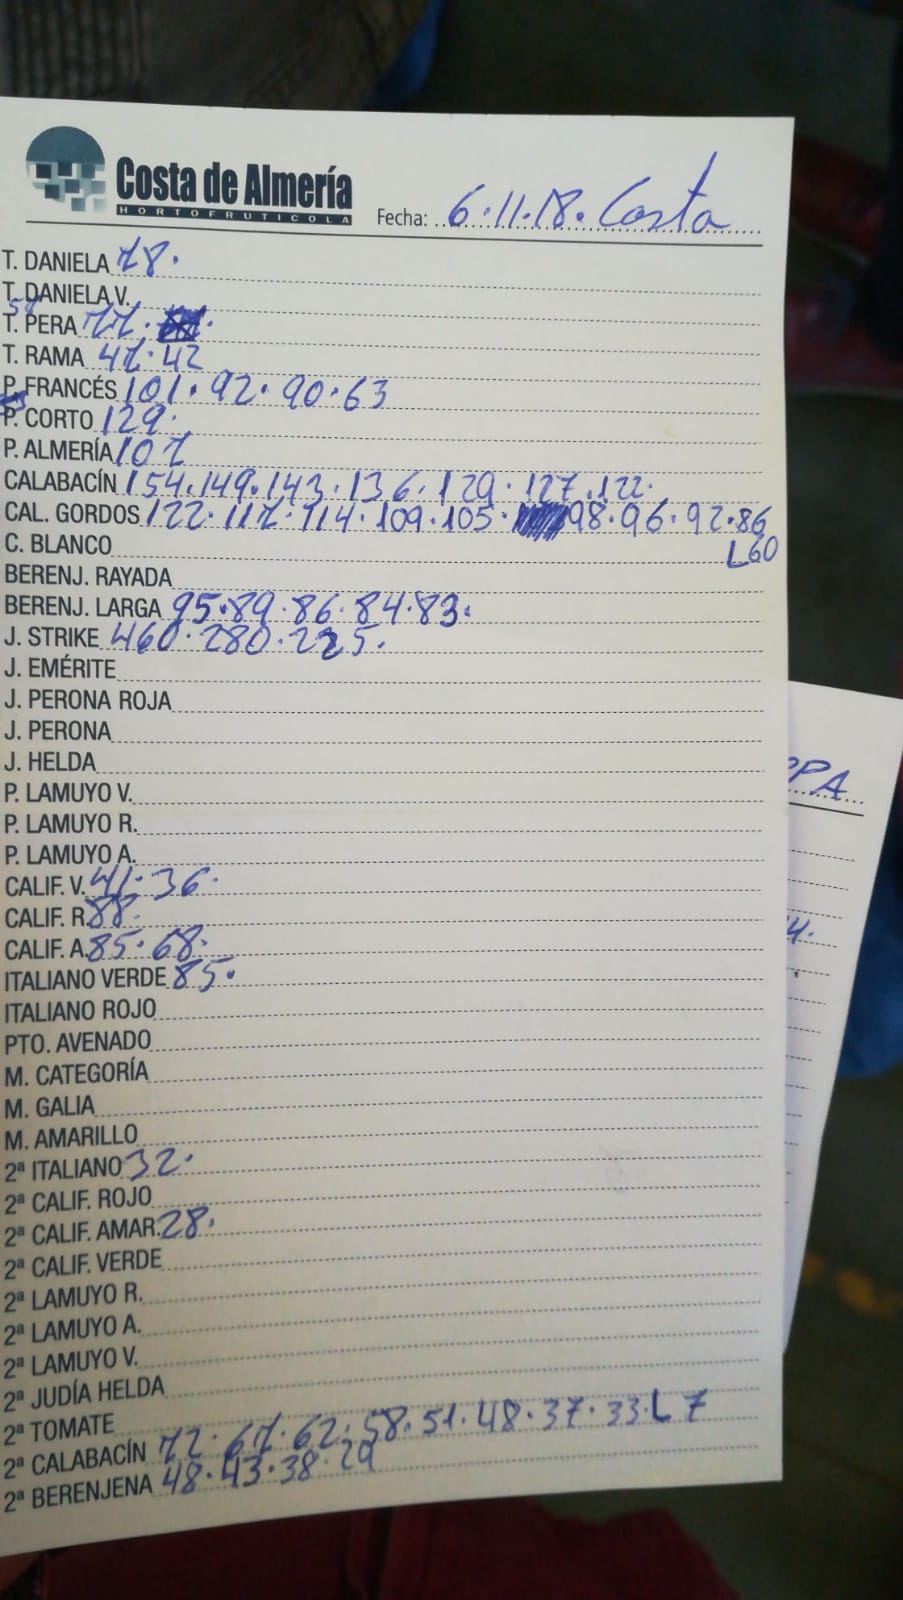 Costa de Almería
HORTOFRUTICOLA
Fecha: 6.11.18. Costa
T. DANIELA 78.
T. DANIELA V.
T. PERA 77.
T. RAMA 47.42
P. FRANCÉS 101.92.90.63
P. CORTO 129.
P. ALMERÍA 107
CALABACÍN 154.149.143.136.129.127.122.
CAL. GORDOS 122.117.114.109.105.98.96.92.86
L60
C. BLANCO
BERENJ. RAYADA
BERENJ. LARGA 95.89.86.84.83.
J. STRIKE 460.280.225.
J. EMÉRITE
J. PERONA ROJA
J. PERONA
J. HELDA
P. LAMUYO V.
P. LAMUYO R.
P. LAMUYO A.
CALIF. V. 41.36.
CALIF. R. 88.
CALIF. A. 85.68.
ITALIANO VERDE 85.
ITALIANO ROJO
PTO. AVENADO
M. CATEGORÍA
M. GALIA
M. AMARILLO
2ª ITALIANO 32.
2ª CALIF. ROJO
2ª CALIF. AMAR. 28.
2ª CALIF. VERDE
2ª LAMUYO R.
2ª LAMUYO A.
2ª LAMUYO V.
2ª JUDÍA HELDA
2ª TOMATE
2ª CALABACÍN 72.67.62.58.51.48.37.33 L 7
2ª BERENJENA 48.43.38.29
PPA
4.